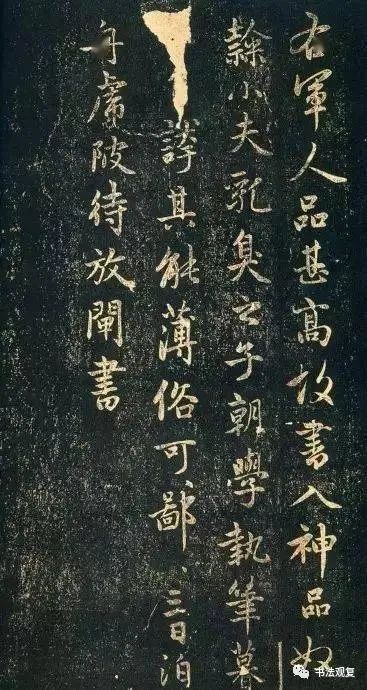 右軍人品甚高故書入神品奴
隸小夫乳臭之子朝學執筆暮
誇其能薄俗可鄙〻三日泊
舟虎陂待放閘書
书法观复